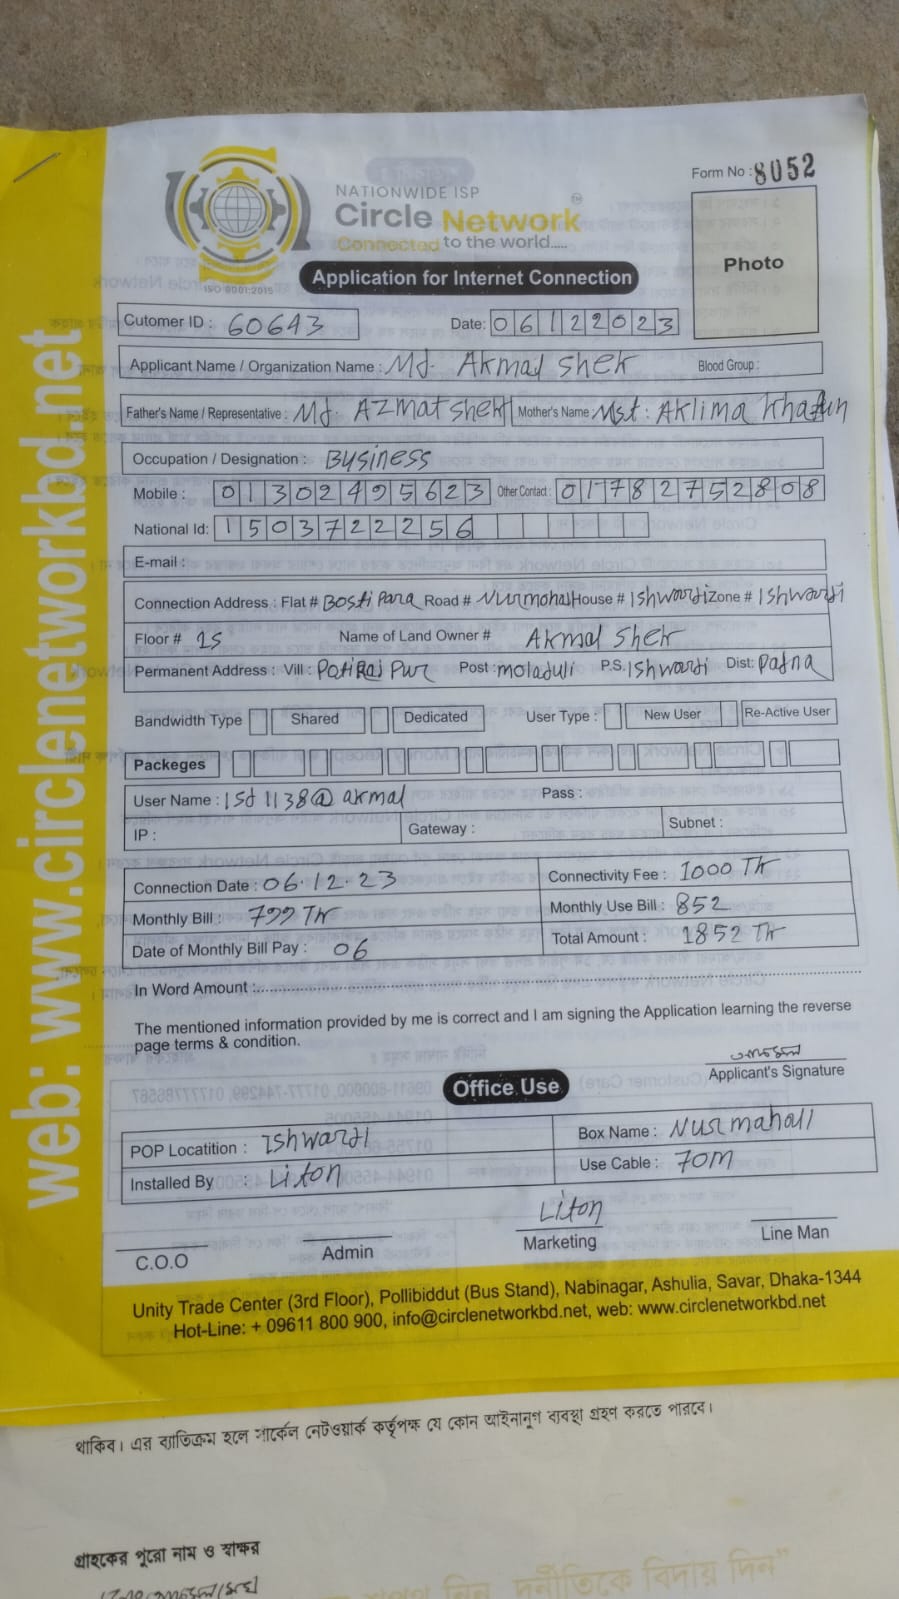 Form No : 8052
NATIONWIDE ISP
Circle Network
Connected to the world.....
ISO 9001:2015
Photo
Application for Internet Connection
Cutomer ID : 60643 Date: 06122023
Applicant Name / Organization Name : Md. Akmal Shek Blood Group :
Father's Name / Representative : Md. Azmat Shek Mother's Name : Mst: Aklima Khatun
Occupation / Designation : Business
Mobile : 01302495623 Other Contact : 01782752808
National Id: 1503722256
E-mail :
Connection Address : Flat # Bosti Para Road # Nurmohal House # Ishwardi Zone # Ishwardi
Floor # Name of Land Owner # Akmal Shek
Permanent Address : Vill : Potiraj Pur Post : moladuli P.S. Ishwardi Dist: Pabna
Bandwidth Type Shared Dedicated User Type : New User Re-Active User
Packeges
User Name : Isd1138@akmal Pass :
IP : Gateway : Subnet :
Connection Date : 06.12.23 Connectivity Fee : 1000 Tk
Monthly Bill : 799 Tk Monthly Use Bill : 852
Date of Monthly Bill Pay : 06 Total Amount : 1852 Tk
In Word Amount :
The mentioned information provided by me is correct and I am signing the Application learning the reverse
page terms & condition.
Applicant's Signature
Office Use
POP Locatition : Ishwardi Box Name : Nurmahall
Installed By : Liton Use Cable : 70M
Liton
C.O.O Admin Marketing Line Man
Unity Trade Center (3rd Floor), Pollibiddut (Bus Stand), Nabinagar, Ashulia, Savar, Dhaka-1344
Hot-Line: + 09611 800 900, info@circlenetworkbd.net, web: www.circlenetworkbd.net
web: www.circlenetworkbd.net
থাকিব। এর ব্যতিক্রম হলে সার্কেল নেটওয়ার্ক কর্তৃপক্ষ যে কোন আইনানুগ ব্যবস্থা গ্রহণ করতে পারবে।
গ্রাহকের পুরো নাম ও স্বাক্ষর
শপথ নিন, দুর্নীতিকে বিদায় দিন"